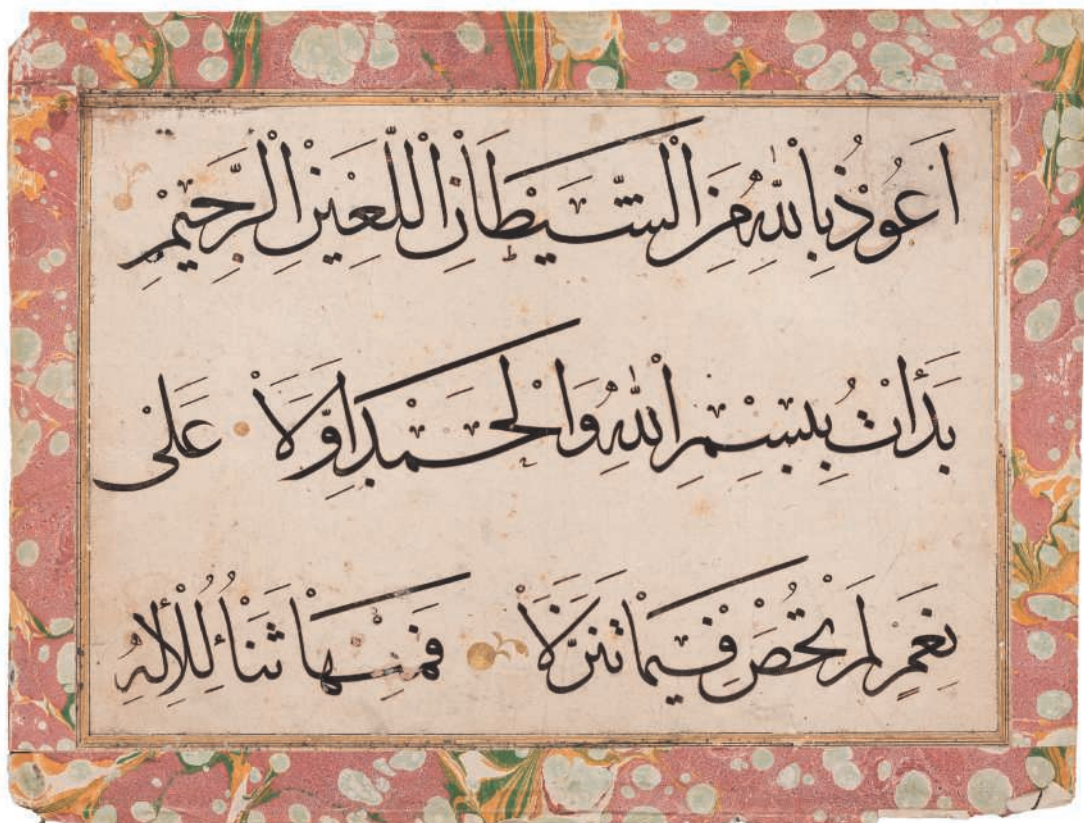 اَعُوْذُ بِاْللّٰهِ مِنَ الْشَّيْطَاْنِ اْللَّعَيْنِ اْلرَّجِيْمِ
بَدَأْتُ بِبِسْمِ اْللّٰهِ وَاْلْحَمْدِ اَوَّلَاْ عَلَىْ
نِعَمٍ لَمْ تُحْصَ فِيْمَاْ تَنَزَّلَاْ فَمِنْهَاْ ثَنَاْءُ لُلْأِلٰهِ